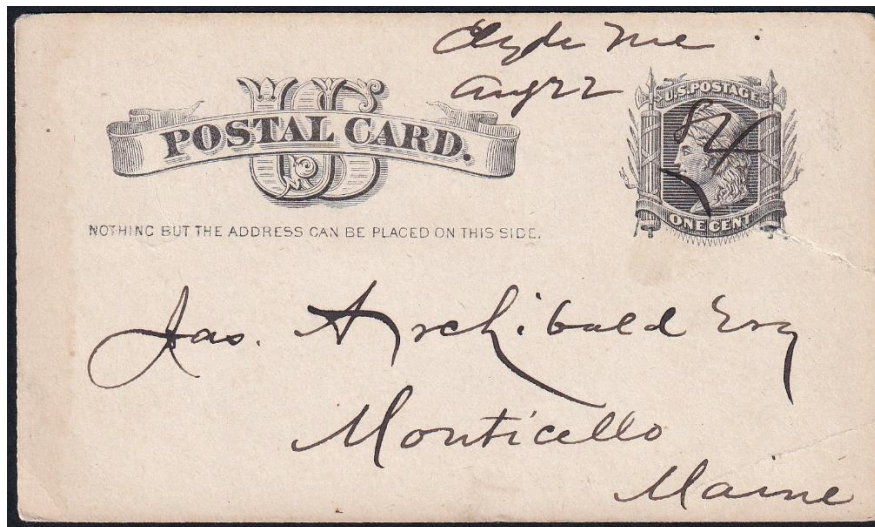 Clyde Me
Aug 22
84
U.S. POSTAGE
US
POSTAL CARD.
ONE CENT
NOTHING BUT THE ADDRESS CAN BE PLACED ON THIS SIDE.
Jas. Archibald Esq
Monticello
Maine